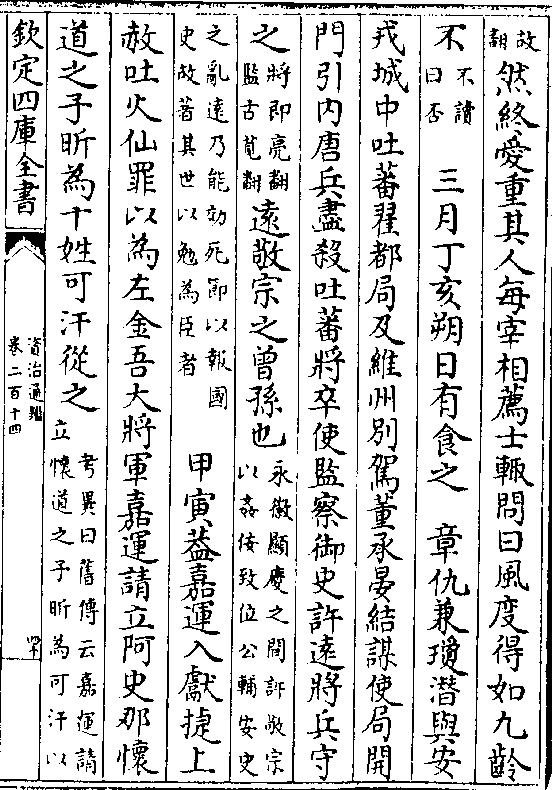 故翻然終愛重其人每宰相薦士輒問曰風度得如九齡
不不讀曰否　三月丁亥朔日有食之　章仇兼瓊潛與安
戎城中吐蕃翟都局及維州別駕董承晏結謀使局開
門引內唐兵盡殺吐蕃將卒使監察御史許遠將兵守
之將即亮翻監古莧翻遠敬宗之曾孫也永徽顯慶之間許敬宗以姦佞致位公輔安史
之亂遠乃能効死節以報國史故著其世以勉為臣者　甲寅葢嘉運入獻捷上
赦吐火仙罪以為左金吾大將軍嘉運請立阿史那懷
道之子昕為十姓可汗從之考異曰舊傳云嘉運請立懷道之子昕為可汗以
欽定四庫全書
資治通鑑
卷二百十四
四十